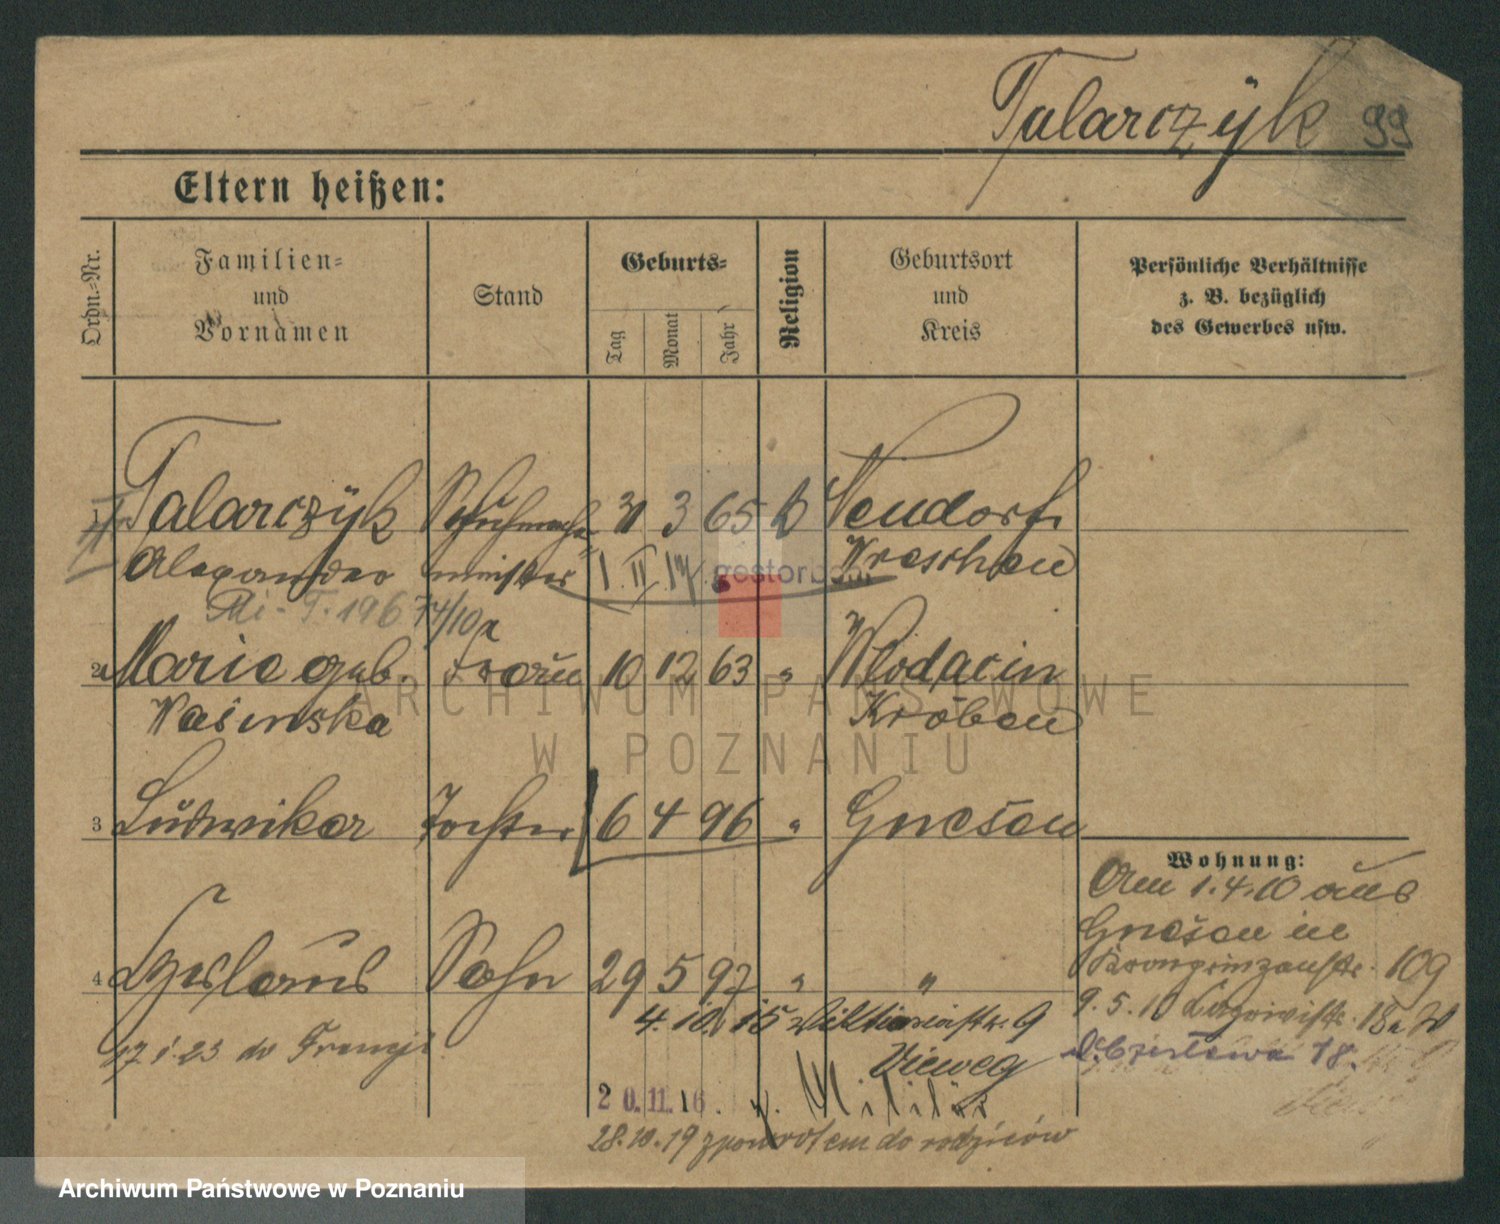 Talarczyk 99
Eltern heißen:
Ordn.-Nr.
Familien-
und
Vornamen
Stand
Geburts-
Tag
Monat
Jahr
Religion
Geburtsort
und
Kreis
Persönliche Verhältnisse
z. B. bezüglich
des Gewerbes usw.
1 Talarczyk Schuhmacher 31 3 65 k Neudorf
Alexander meister 1. II. 17. gestorben Wreschen
T. 196 74/10
2 Marie geb. Frau 10 12 63 " Wlodacin
Kröben
3 Ludwika Tochter 6 4 96 " Gnesen
Wohnung:
Am 1.4.10 aus
Gnesen in
Kronprinzenstr. 109
4 Sohn 29 5 97 " "
9.5.10 18a
4.10.15 Viktoriastr. 9
17.1.23 do Francji
Vieweg
18.
20.11.16. z. Militär
28.10.19 z powrotem do rodziców
ARCHIWUM PAŃSTWOWE
W POZNANIU
Archiwum Państwowe w Poznaniu